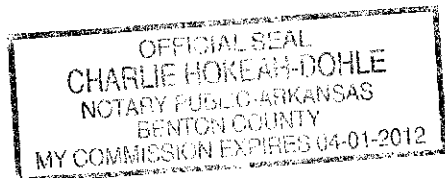 OFFICIAL SEAL
CHARLIE HOKEAH-DOHLE
NOTARY PUBLIC-ARKANSAS
BENTON COUNTY
MY COMMISSION EXPIRES 04-01-2012